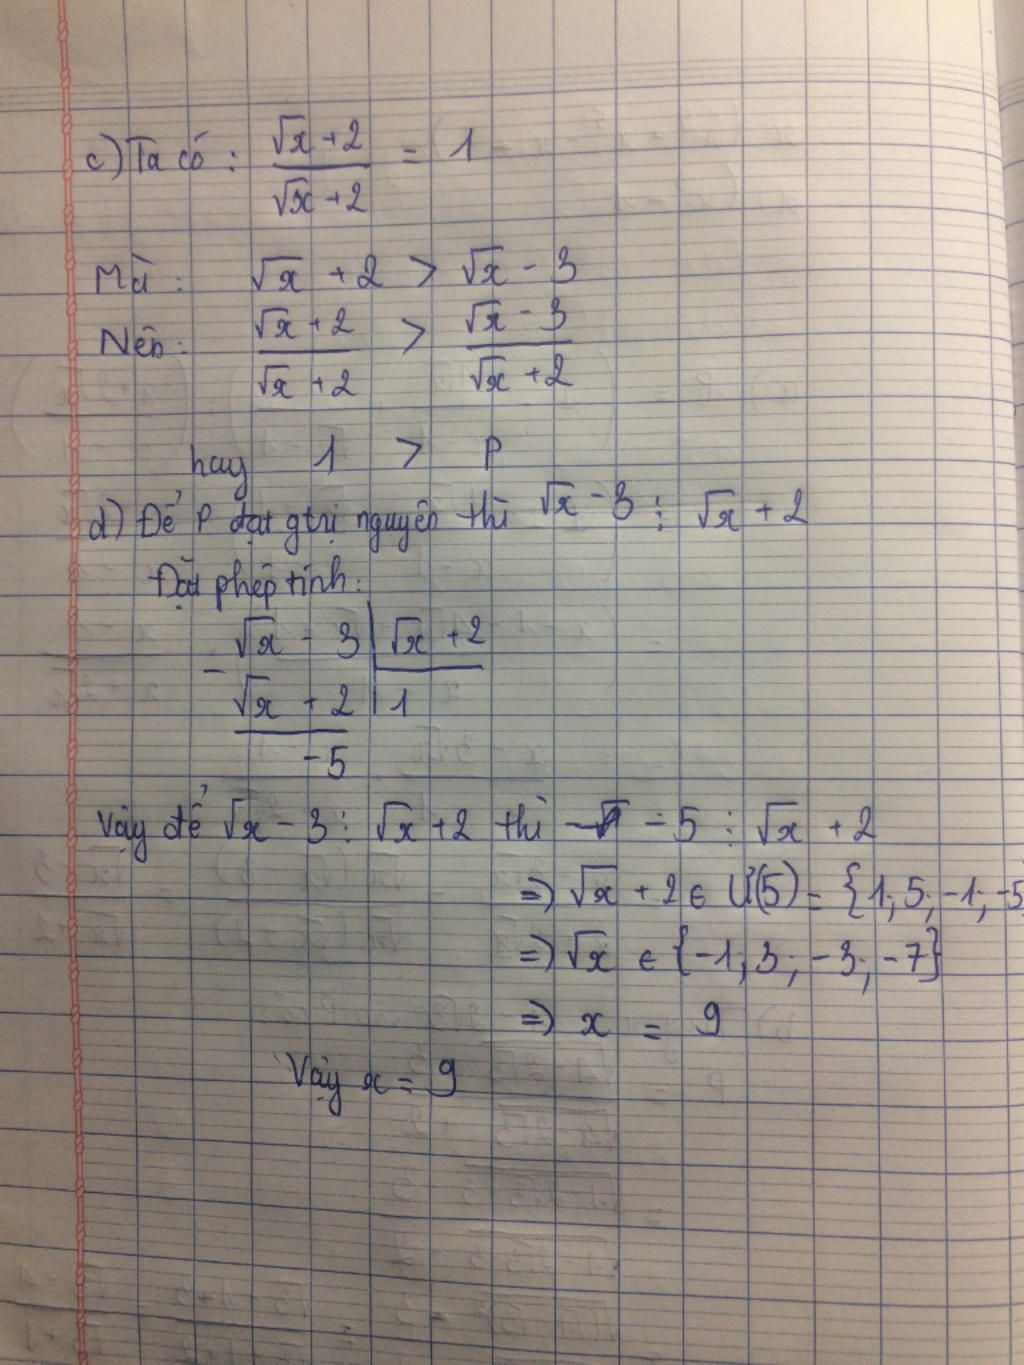 c) Ta có : √x + 2 / √x + 2 = 1
Mà : √x + 2 > √x - 3
Nên : √x + 2 / √x + 2 > √x - 3 / √x + 2
hay 1 > P
d) Để P đạt gtrị nguyên thì √x - 3 ⋮ √x + 2
Đặt phép tính :
- √x - 3 | √x + 2
√x + 2 | 1
-5
Vậy để √x - 3 ⋮ √x + 2 thì -5 ⋮ √x + 2
=> √x + 2 ∈ Ư(5) = {1; 5; -1; -5
=> √x ∈ {-1; 3; -3; -7}
=> x = 9
Vậy x = 9